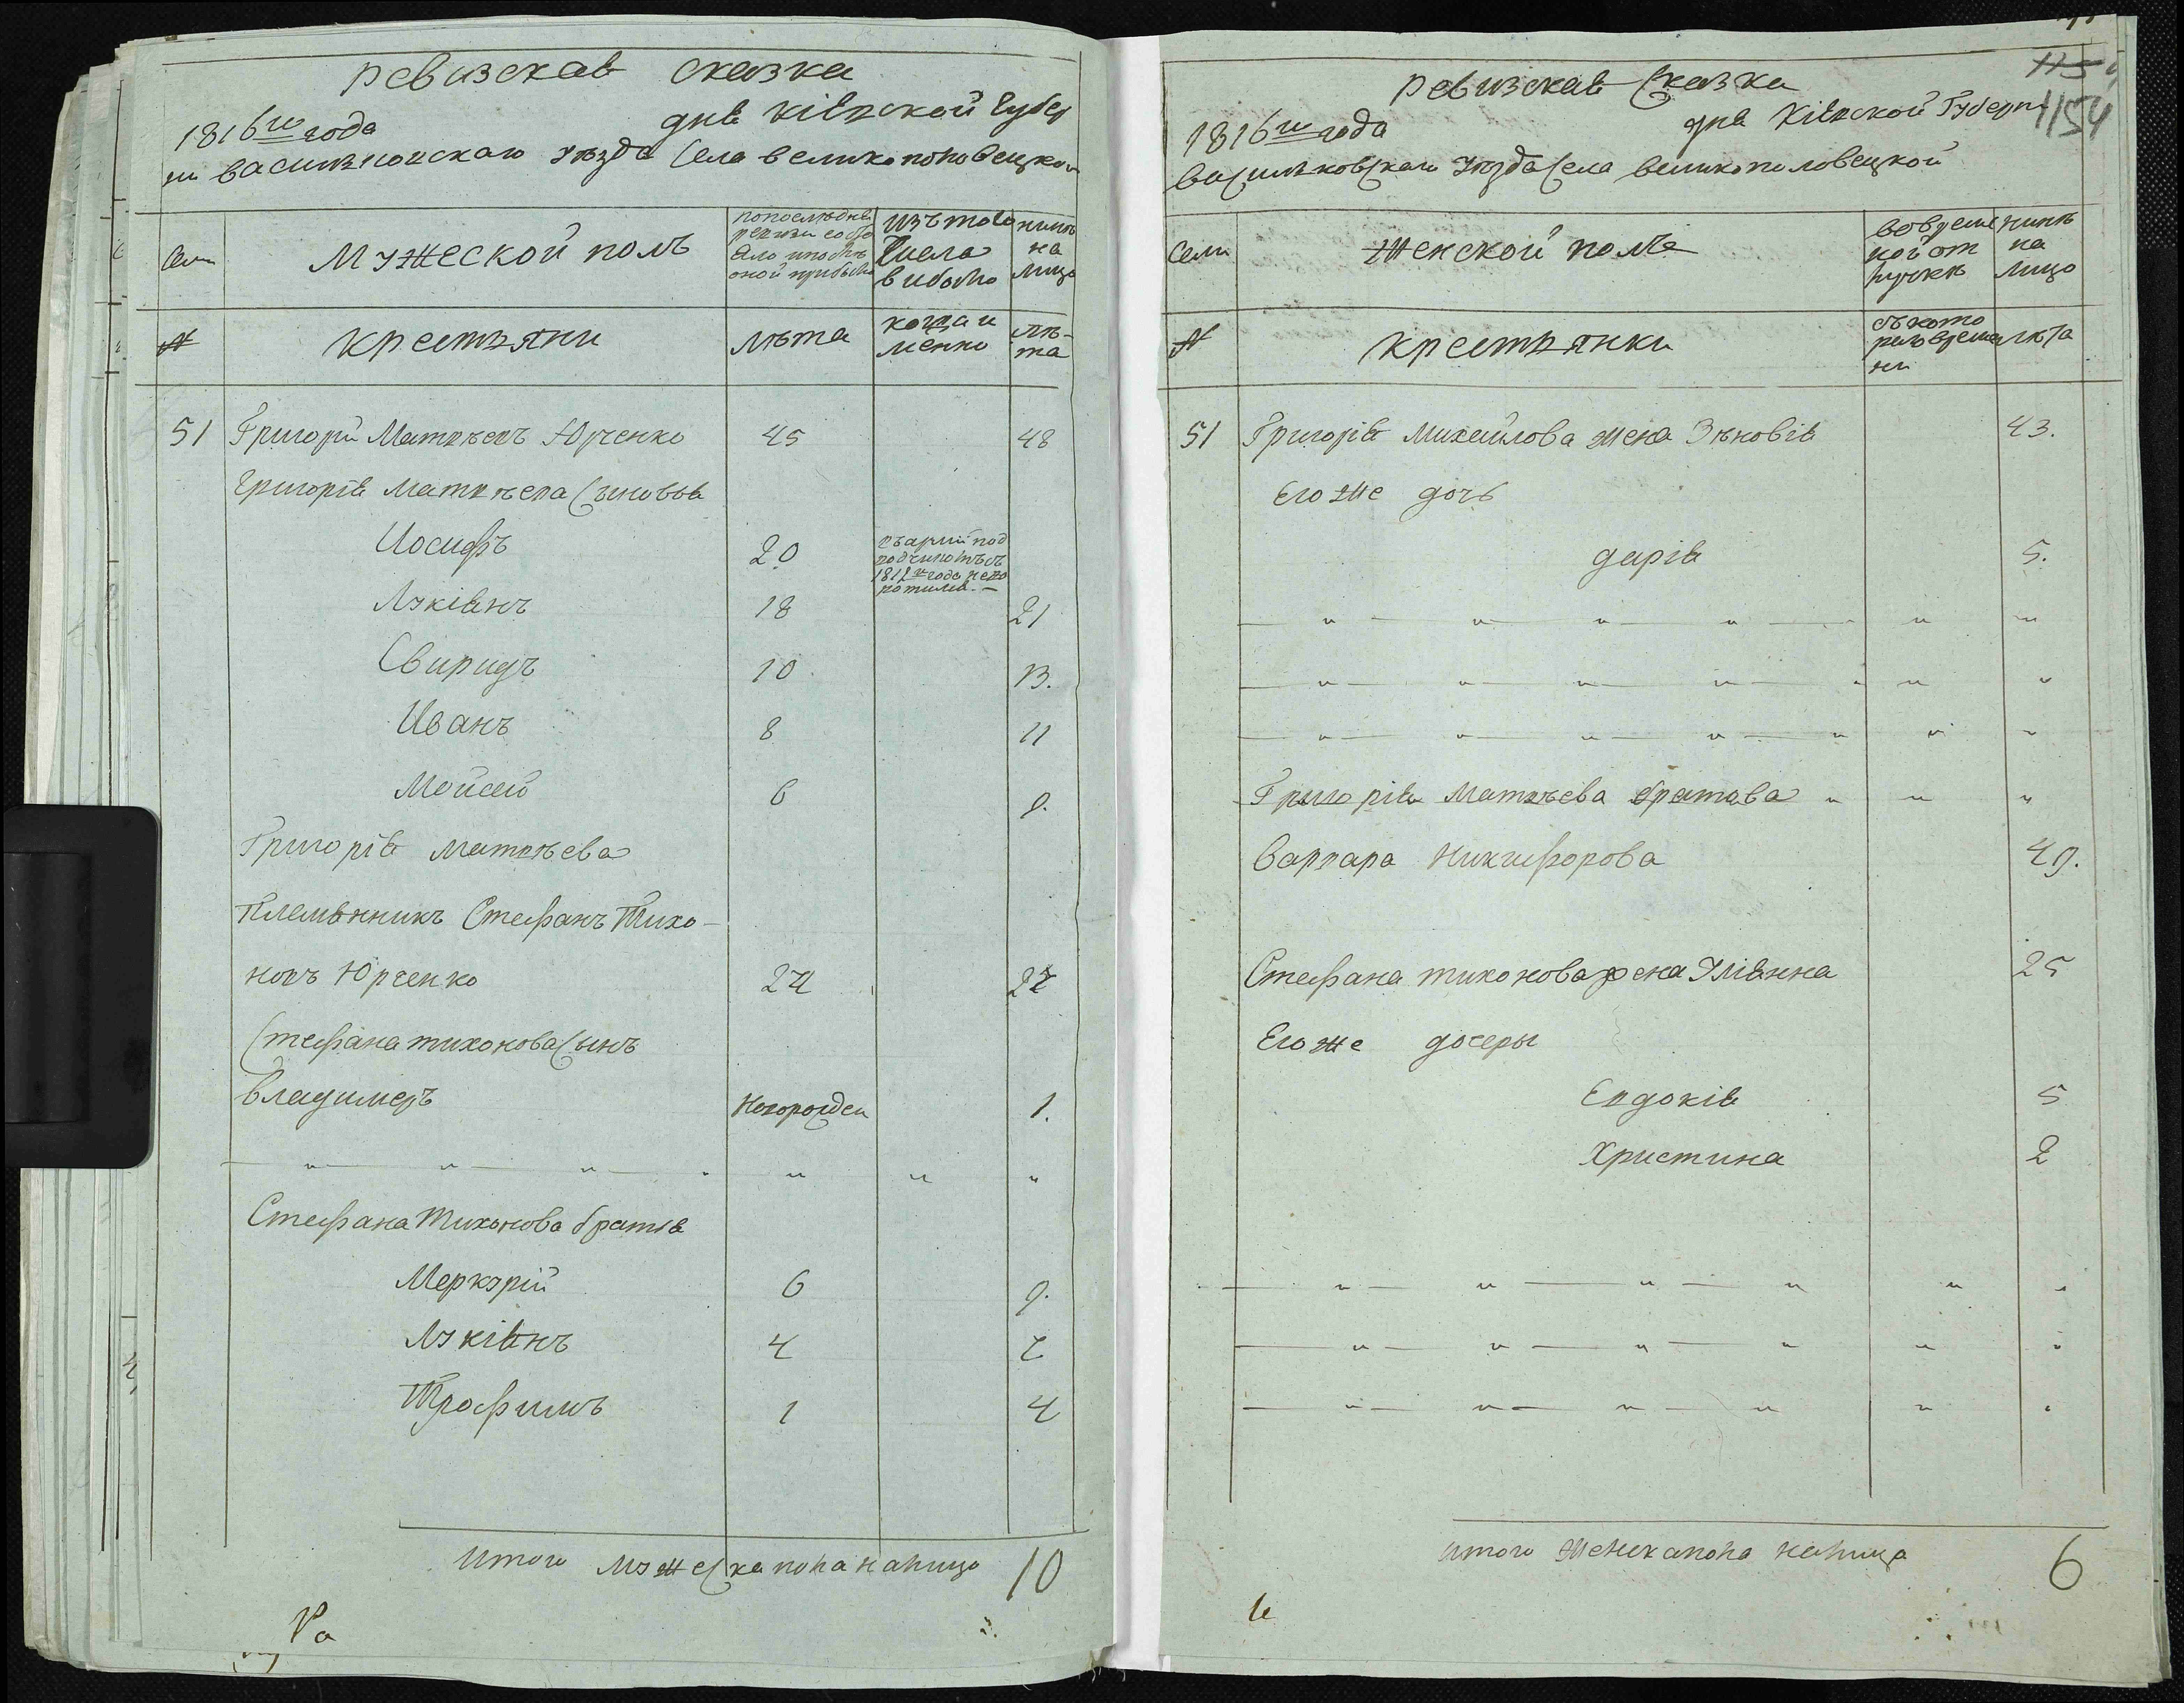 ревизская сказка
1816го года
дня кіевской губер
нии васильковскаго уезда села великополовецкой
Семи
мужеской полъ
изъ того
числа
выбыло
ныне
на
лицо
№
крестьяни
лѣта
когда и
менно
лѣ-
та
51 Григорій Матвѣевъ Юрченко 45 48
Григорія Матвѣева сыновья
Иосифъ 20
1812го года
Лукіянъ 18 21
Свиридъ 10 13.
Иванъ 8 11
Мойсей 6 9.
Григорія матвѣева
племянникъ Стефанъ Тихо-
новъ Юрченко 24 27
Стефана тихонова сынъ
Владимеръ новорожден 1.
Стефана Тихонова братья
Меркурій 6 9.
Лукіянъ 4 7
Трофимъ 1 4
Итого мужеска пола налицо 10
ревизская Сказка
1154
1816го года
дня Кіевской Губерн
васильковскаго уезда села великополовецкой
Семи
женской полъ
ныне
на
лицо
№
крестьянки
лѣта
51 Григорія Михайлова жена Зеновія 43.
Его же дочь
дарія 5.
Григорія Матвѣева братова
Варвара Никифорова 49.
Стефана тихонова жена Улianна 25
Его же дочеры
Евдокія 5
Христина 2
итого женска пола налицо 6